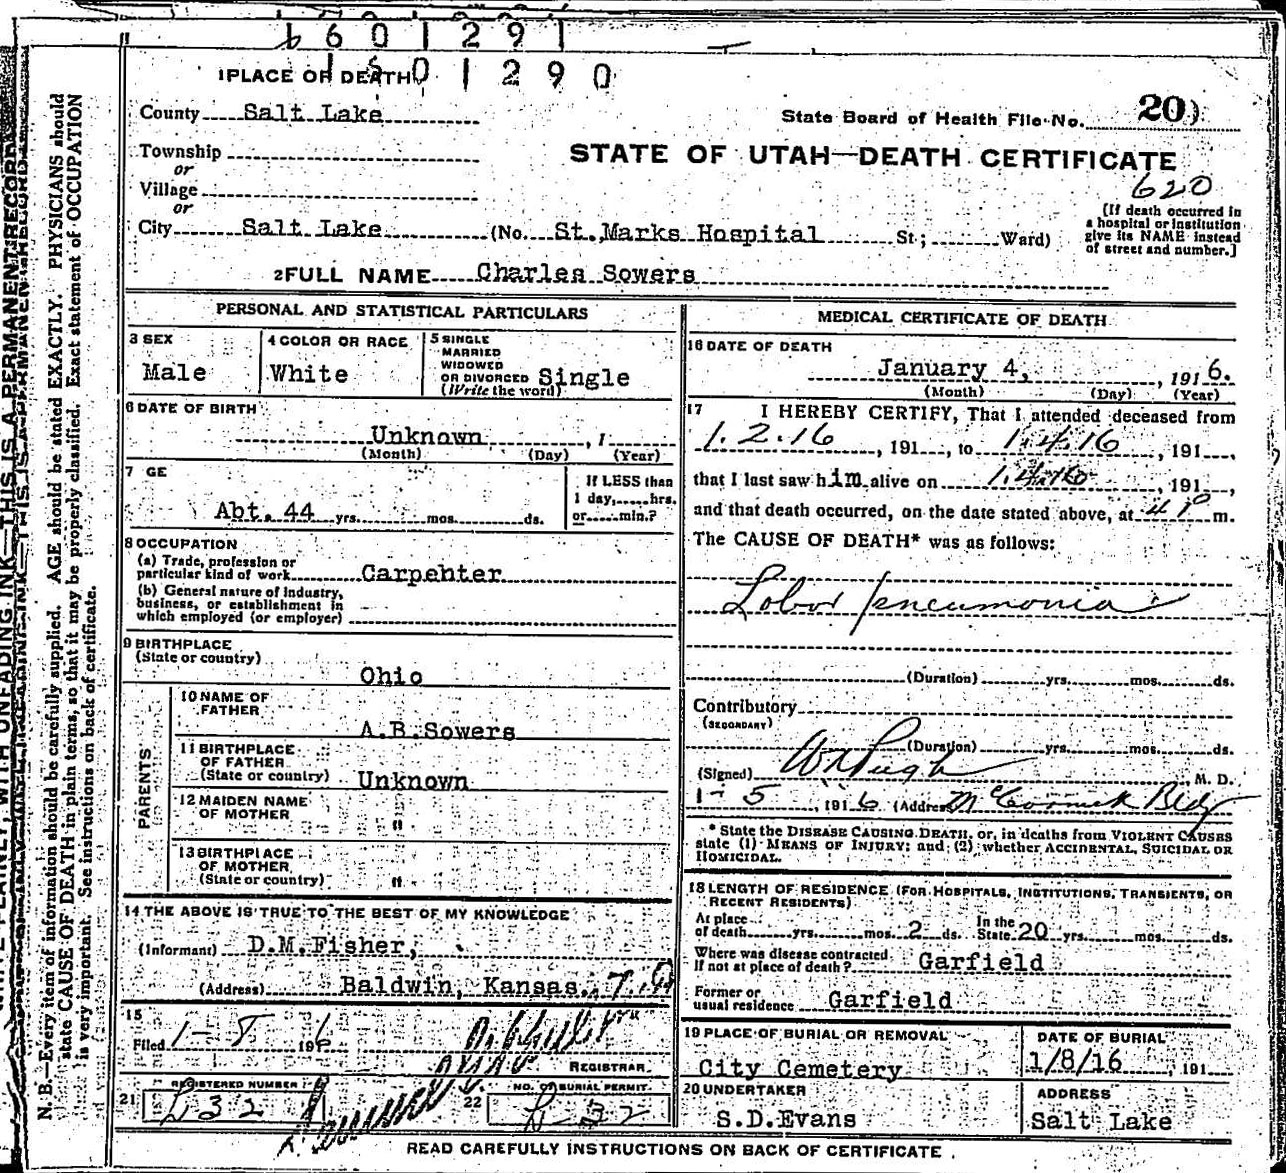 6601291
1501290
1 PLACE OF DEATH
County Salt Lake
State Board of Health File No. 20
Township
or
STATE OF UTAH—DEATH CERTIFICATE
620
Village
or
City Salt Lake (No. St. Marks Hospital St.; Ward)
(If death occurred in
a hospital or institution
give its NAME instead
of street and number.]
2 FULL NAME Charles Sowers
PERSONAL AND STATISTICAL PARTICULARS
3 SEX
Male
4 COLOR OR RACE
White
5 SINGLE
MARRIED
WIDOWED
OR DIVORCED Single
(Write the word)
6 DATE OF BIRTH
Unknown , 1
(Month) (Day) (Year)
7 GE
Abt. 44 yrs. mos. ds.
If LESS than
1 day, hrs.
or min.?
8 OCCUPATION
(a) Trade, profession or
particular kind of work Carpenter
(b) General nature of Industry,
business, or establishment in
which employed (or employer)
9 BIRTHPLACE
(State or country)
Ohio
PARENTS
10 NAME OF
FATHER
A.B.Sowers
11 BIRTHPLACE
OF FATHER
(State or country) Unknown
12 MAIDEN NAME
OF MOTHER "
13 BIRTHPLACE
OF MOTHER
(State or country) "
14 THE ABOVE IS TRUE TO THE BEST OF MY KNOWLEDGE
(Informant) D.M.Fisher,
(Address) Baldwin, Kansas.
15
Filed 1-5 1916
REGISTRAR.
REGISTERED NUMBER
21 L32
NO. OF BURIAL PERMIT.
22
MEDICAL CERTIFICATE OF DEATH
16 DATE OF DEATH
January 4, , 1916.
(Month) (Day) (Year)
17 I HEREBY CERTIFY, That I attended deceased from
1.2.16 , 191 , to 1.4.16 , 191 ,
that I last saw him alive on 1.4.16 , 191 ,
and that death occurred, on the date stated above, at 4 P m.
The CAUSE OF DEATH* was as follows:
Lobar pneumonia
(Duration) yrs. mos. ds.
Contributory
(SECONDARY)
(Duration) yrs. mos. ds.
(Signed) Wm Pugh M. D.
1-5 , 1916 (Address) McCormick Bldg
* State the DISEASE CAUSING DEATH, or, in deaths from VIOLENT CAUSES
state (1) MEANS OF INJURY; and (2) whether ACCIDENTAL, SUICIDAL OR
HOMICIDAL.
18 LENGTH OF RESIDENCE (FOR HOSPITALS, INSTITUTIONS, TRANSIENTS, OR
RECENT RESIDENTS)
At place
of death yrs. mos. 2 ds.
In the
State 20 yrs. mos. ds.
Where was disease contracted
if not at place of death? Garfield
Former or
usual residence Garfield
19 PLACE OF BURIAL OR REMOVAL
City Cemetery
DATE OF BURIAL
1/8/16 , 191
20 UNDERTAKER
S.D.Evans
ADDRESS
Salt Lake
READ CAREFULLY INSTRUCTIONS ON BACK OF CERTIFICATE.
PLAINLY, WITH UNFADING INK—THIS IS A PERMANENT RECORD
N. B.—Every item of information should be carefully supplied. AGE should be stated EXACTLY. PHYSICIANS should
state CAUSE OF DEATH in plain terms, so that it may be properly classified. Exact statement of OCCUPATION
is very important. See instructions on back of certificate.